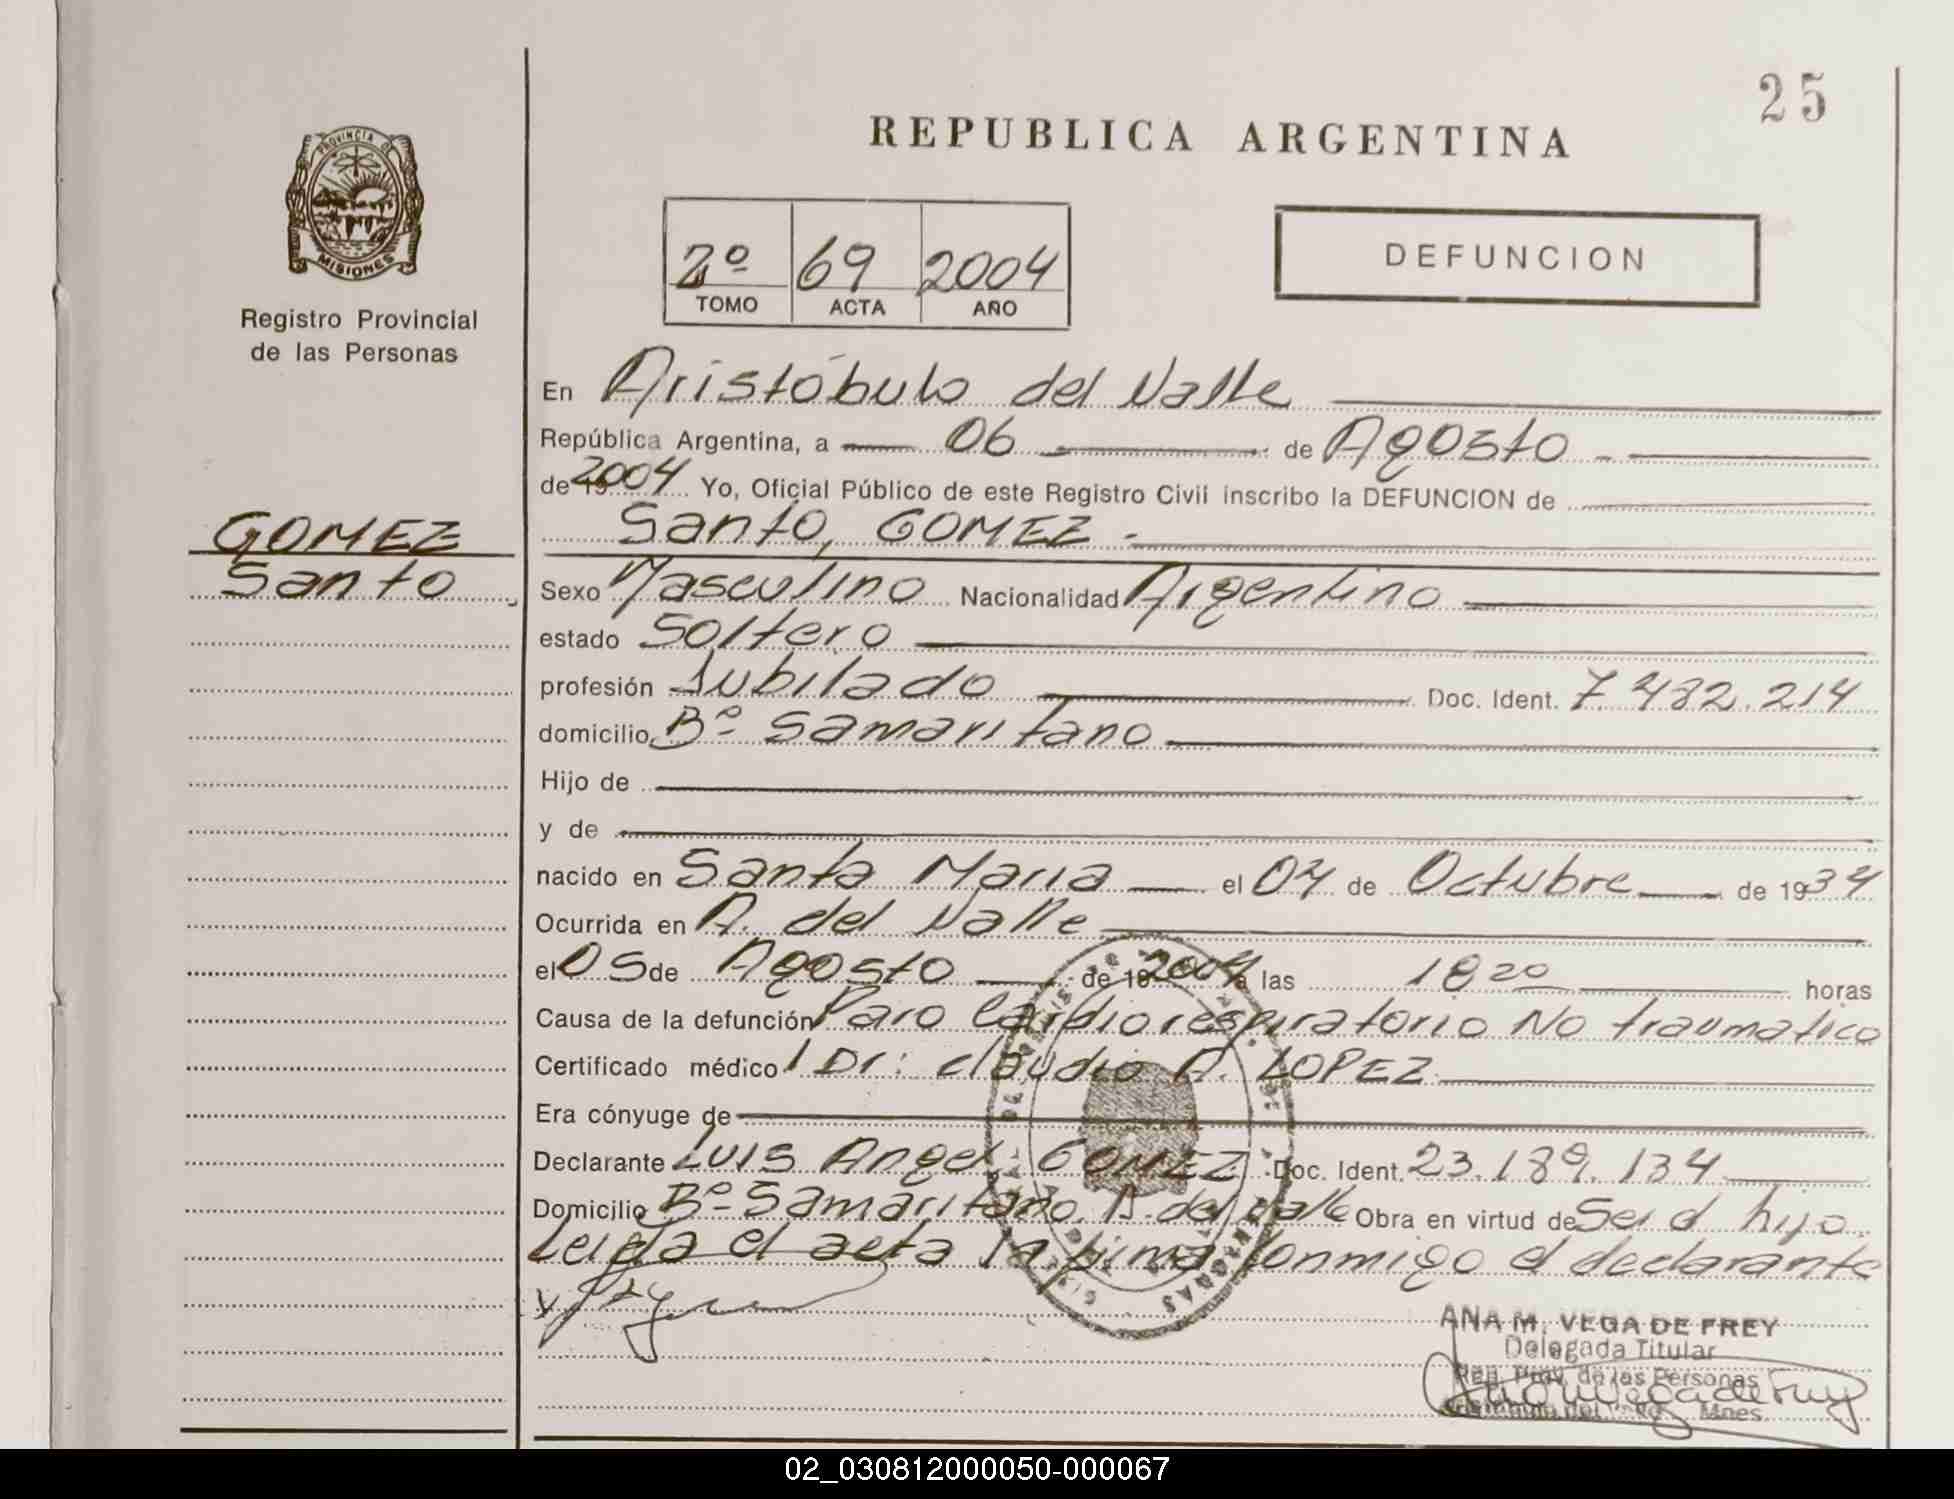 25
REPUBLICA ARGENTINA
PROVINCIA DE
MISIONES
Registro Provincial
de las Personas
2º 69 2004
TOMO ACTA AÑO
DEFUNCION
En Aristóbulo del Valle
República Argentina, a 06 de Agosto
de 19 2004 Yo, Oficial Público de este Registro Civil inscribo la DEFUNCION de
Santo, GOMEZ.-
GOMEZ
Santo
Sexo Masculino Nacionalidad Argentino
estado Soltero
profesión Jubilado Doc. Ident. 7.482.214
domicilio Bº- Samaritano
Hijo de
y de
nacido en Santa Maria el 04 de Octubre de 1934
Ocurrida en A. del Valle
el 05 de Agosto de 19 2004 a las 18 20 horas
Causa de la defunción Paro Cardiorespiratorio No traumatico
Certificado médico Dr: Claudio A. LOPEZ
Era cónyuge de
Declarante Luis Angel GOMEZ Doc. Ident. 23.189.134
Domicilio Bº- Samaritano. A. del Valle Obra en virtud de Ser el hijo
Leida el acta la firma conmigo el declarante
ANA M. VEGA DE FREY
Delegada Titular
Reg. Prov. de las Personas
Mnes
02_030812000050-000067